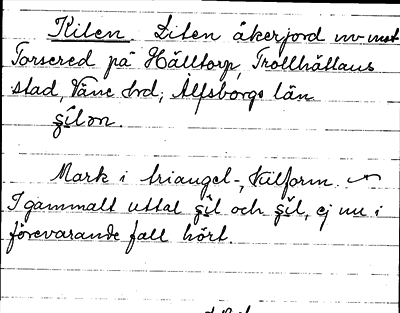 Kilen Liten åkerjord nv mot
Torsered på Hälltorp, Trollhättans
stad, Väne hrd; Älfsborgs län
s̨ìlon.
Mark i triangel-, kilform.
I gammalt uttal s̨îl och s̨ĭl, ej nu i
förevarande fall hört.